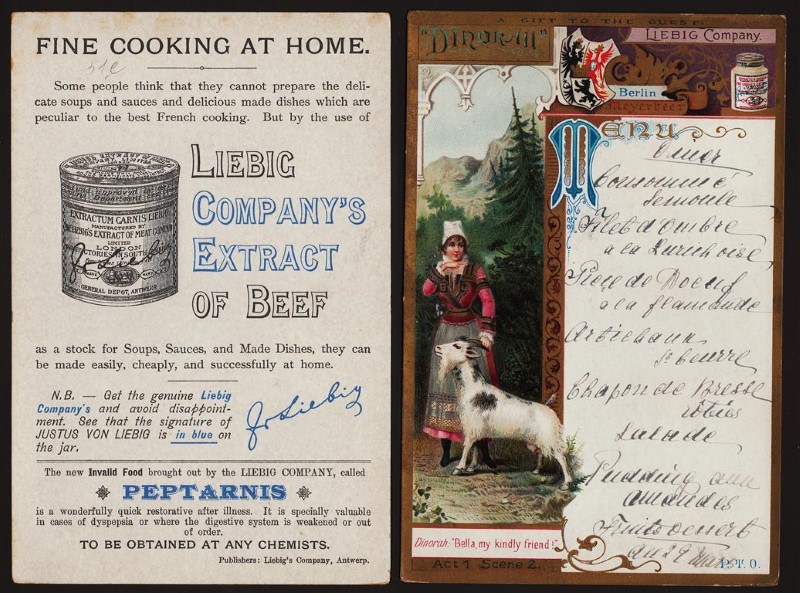 FINE COOKING AT HOME.
Some people think that they cannot prepare the deli-
cate soups and sauces and delicious made dishes which are
peculiar to the best French cooking. But by the use of
EXTRACTUM CARNIS LIEBIG
MANUFACTURED BY
LIEBIG'S EXTRACT OF MEAT COMPANY
LIMITED
LONDON
GENERAL DEPOT, ANTWERP
LIEBIG
COMPANY'S
EXTRACT
OF BEEF
as a stock for Soups, Sauces, and Made Dishes, they can
be made easily, cheaply, and successfully at home.
N.B. — Get the genuine Liebig
Company's and avoid disappoint-
ment. See that the signature of
JUSTUS VON LIEBIG is in blue on
the jar.
J v Liebig
The new Invalid Food brought out by the LIEBIG COMPANY, called
PEPTARNIS
is a wonderfully quick restorative after illness. It is specially valuable
in cases of dyspepsia or where the digestive system is weakened or out
of order.
TO BE OBTAINED AT ANY CHEMISTS.
Publishers: Liebig's Company, Antwerp.
A GIFT TO THE GUEST.
"DINORAH"
LIEBIG Company.
Berlin
Meyerbeer
MENU
Diner
Consommé
Semoule
Filet d'ombre
a la Zurichoise
Piece de Boeuf
a la flamande
Artichaux
Chapon de Bresse
roties
Salade
Pudding aux
amandes
Fruits dessert
P.T.O.
Dinorah: "Bella, my kindly friend!"
Act 1 Scene 2.